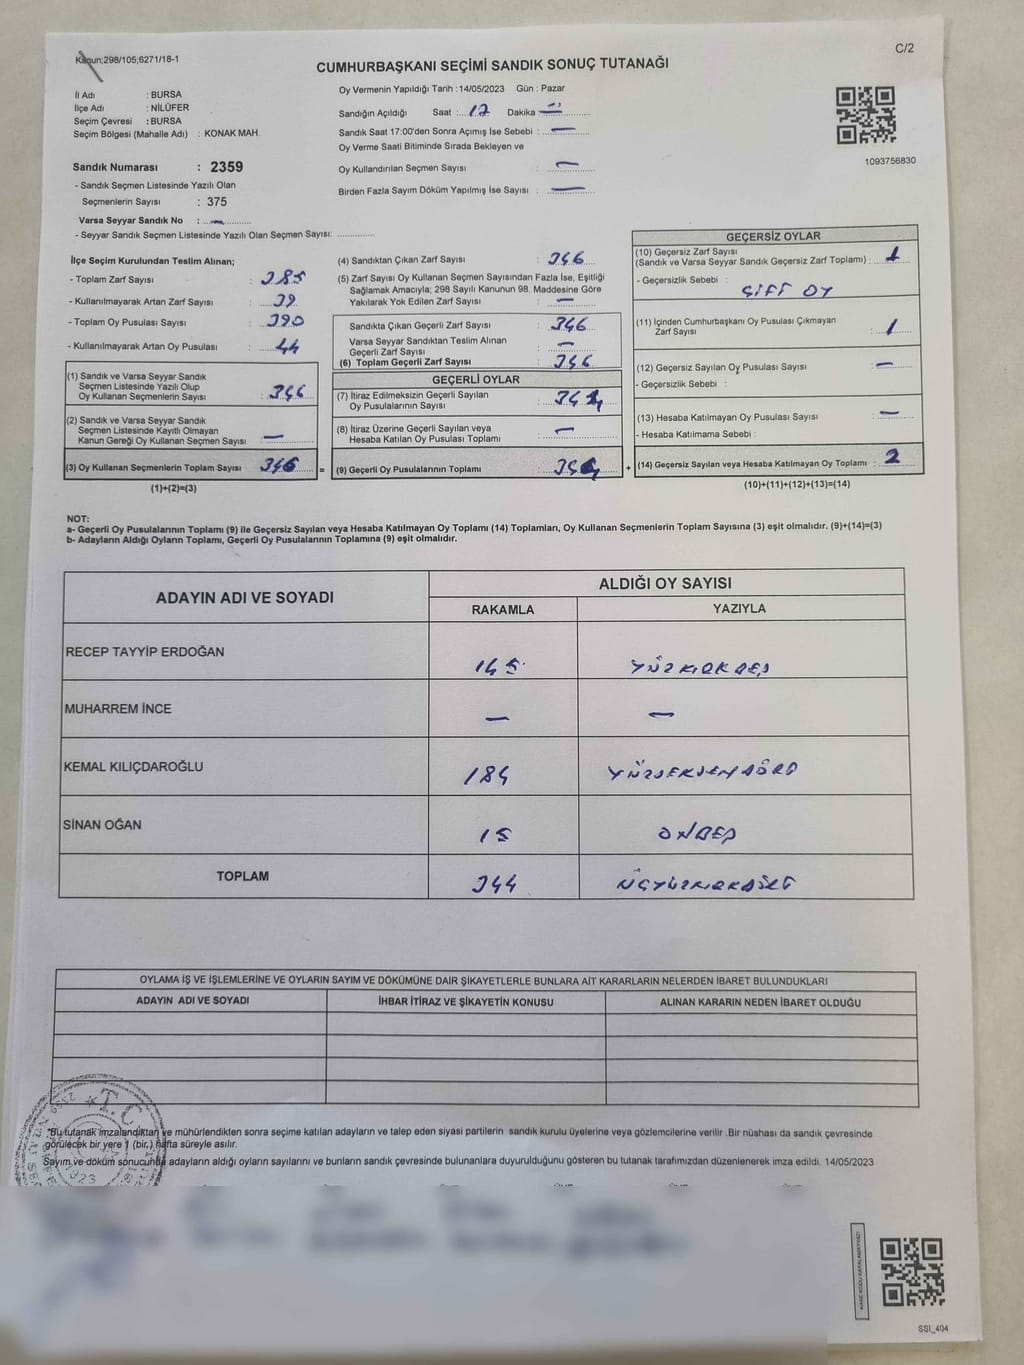 Kanun;298/105;6271/18-1
C/2
CUMHURBAŞKANI SEÇİMİ SANDIK SONUÇ TUTANAĞI
İl Adı : BURSA
İlçe Adı : NİLÜFER
Seçim Çevresi : BURSA
Seçim Bölgesi (Mahalle Adı) : KONAK MAH.
Oy Vermenin Yapıldığı Tarih : 14/05/2023 Gün : Pazar
Sandığın Açıldığı Saat : 17 Dakika —
Sandık Saat 17:00'den Sonra Açımış İse Sebebi : —
Oy Verme Saati Bitiminde Sırada Bekleyen ve
Oy Kullandırılan Seçmen Sayısı : —
Birden Fazla Sayım Döküm Yapılmış İse Sayısı : —
1093756830
Sandık Numarası : 2359
- Sandık Seçmen Listesinde Yazılı Olan
Seçmenlerin Sayısı : 375
Varsa Seyyar Sandık No : —
- Seyyar Sandık Seçmen Listesinde Yazılı Olan Seçmen Sayısı:
İlçe Seçim Kurulundan Teslim Alınan;
- Toplam Zarf Sayısı : 385
- Kullanılmayarak Artan Zarf Sayısı : 39
- Toplam Oy Pusulası Sayısı : 390
- Kullanılmayarak Artan Oy Pusulası : 44
(1) Sandık ve Varsa Seyyar Sandık
Seçmen Listesinde Yazılı Olup
Oy Kullanan Seçmenlerin Sayısı : 346
(2) Sandık ve Varsa Seyyar Sandık
Seçmen Listesinde Kayıtlı Olmayan
Kanun Gereği Oy Kullanan Seçmen Sayısı : —
(3) Oy Kullanan Seçmenlerin Toplam Sayısı 346 =
(1)+(2)=(3)
(4) Sandıktan Çıkan Zarf Sayısı : 346
(5) Zarf Sayısı Oy Kullanan Seçmen Sayısından Fazla İse, Eşitliği
Sağlamak Amacıyla; 298 Sayılı Kanunun 98. Maddesine Göre
Yakılarak Yok Edilen Zarf Sayısı : —
Sandıkta Çıkan Geçerli Zarf Sayısı : 346
Varsa Seyyar Sandıktan Teslim Alınan
Geçerli Zarf Sayısı : —
(6) Toplam Geçerli Zarf Sayısı : 346
GEÇERLİ OYLAR
(7) İtiraz Edilmeksizin Geçerli Sayılan
Oy Pusulalarının Sayısı : 344
(8) İtiraz Üzerine Geçerli Sayılan veya
Hesaba Katılan Oy Pusulası Toplamı : —
(9) Geçerli Oy Pusulalarının Toplamı : 344 +
GEÇERSİZ OYLAR
(10) Geçersiz Zarf Sayısı
(Sandık ve Varsa Seyyar Sandık Geçersiz Zarf Toplamı) : 1
- Geçersizlik Sebebi :
ÇİFT OY
(11) İçinden Cumhurbaşkanı Oy Pusulası Çıkmayan
Zarf Sayısı : 1
(12) Geçersiz Sayılan Oy Pusulası Sayısı : —
- Geçersizlik Sebebi :
(13) Hesaba Katılmayan Oy Pusulası Sayısı : —
- Hesaba Katılmama Sebebi :
(14) Geçersiz Sayılan veya Hesaba Katılmayan Oy Toplamı : 2
(10)+(11)+(12)+(13)=(14)
NOT:
a- Geçerli Oy Pusulalarının Toplamı (9) ile Geçersiz Sayılan veya Hesaba Katılmayan Oy Toplamı (14) Toplamları, Oy Kullanan Seçmenlerin Toplam Sayısına (3) eşit olmalıdır. (9)+(14)=(3)
b- Adayların Aldığı Oyların Toplamı, Geçerli Oy Pusulalarının Toplamına (9) eşit olmalıdır.
ADAYIN ADI VE SOYADI
ALDIĞI OY SAYISI
RAKAMLA YAZIYLA
RECEP TAYYİP ERDOĞAN 145 YÜZKIRKBEŞ
MUHARREM İNCE — —
KEMAL KILIÇDAROĞLU 184 YÜZSEKSENDÖRD
SİNAN OĞAN 15 ONBEŞ
TOPLAM 344 ÜÇYÜZKIRKDÖRT
OYLAMA İŞ VE İŞLEMLERİNE VE OYLARIN SAYIM VE DÖKÜMÜNE DAİR ŞİKAYETLERLE BUNLARA AİT KARARLARIN NELERDEN İBARET BULUNDUKLARI
ADAYIN ADI VE SOYADI İHBAR İTİRAZ VE ŞİKAYETİN KONUSU ALINAN KARARIN NEDEN İBARET OLDUĞU
T.C
2359
"Bu tutanak imzalandıktan ve mühürlendikten sonra seçime katılan adayların ve talep eden siyasi partilerin sandık kurulu üyelerine veya gözlemcilerine verilir .Bir nüshası da sandık çevresinde
görülecek bir yere 1 (bir,) hafta süreyle asılır.
Sayım ve döküm sonucunda adayların aldığı oyların sayılarını ve bunların sandık çevresinde bulunanlara duyurulduğunu gösteren bu tutanak tarafımızdan düzenlenerek imza edildi. 14/05/2023
SSI_404